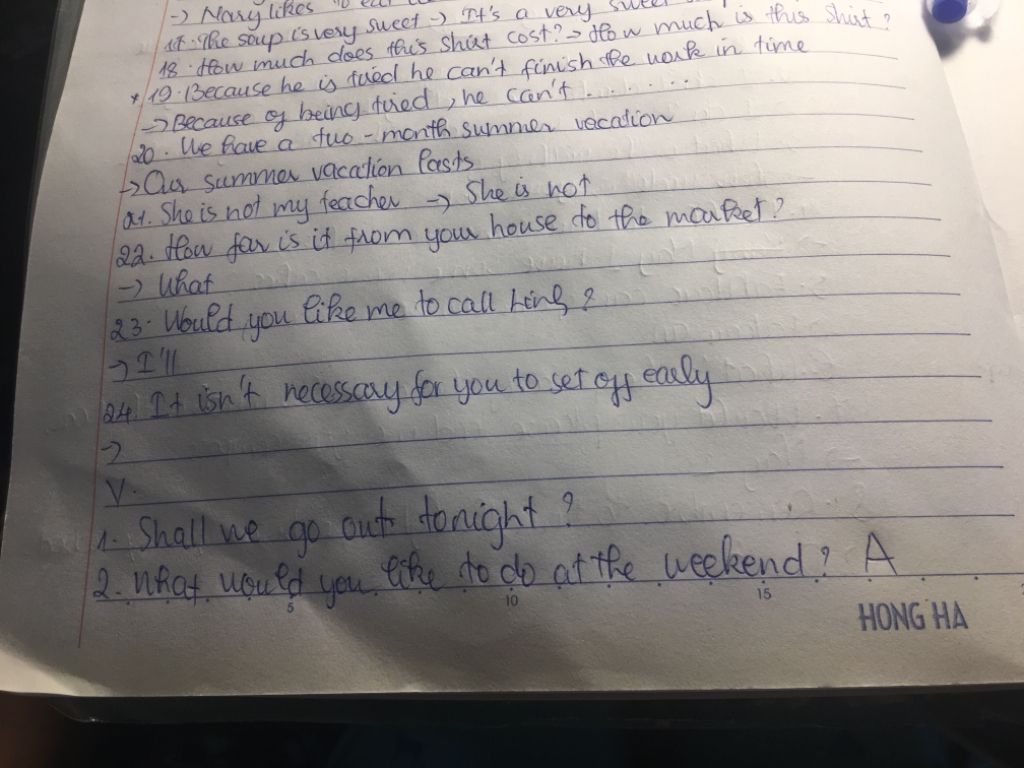 -> Mary likes to eat
17. The soup is very sweet -> It's a very sweet
18. How much does this shirt cost? -> How much is this shirt?
* 19. Because he is tired he can't finish the work in time
-> Because of being tired, he can't .......
20. We have a two-month summer vecation
-> Our summer vacation lasts
21. She is not my teacher -> She is not
22. How far is it from your house to the market?
-> What
23. Would you like me to call him?
-> I'll
24. It isn't necessary for you to set off early
->
V.
1. Shall we go out tonight?
2. What would you like to do at the weekend? A
5 10 15
HONG HA